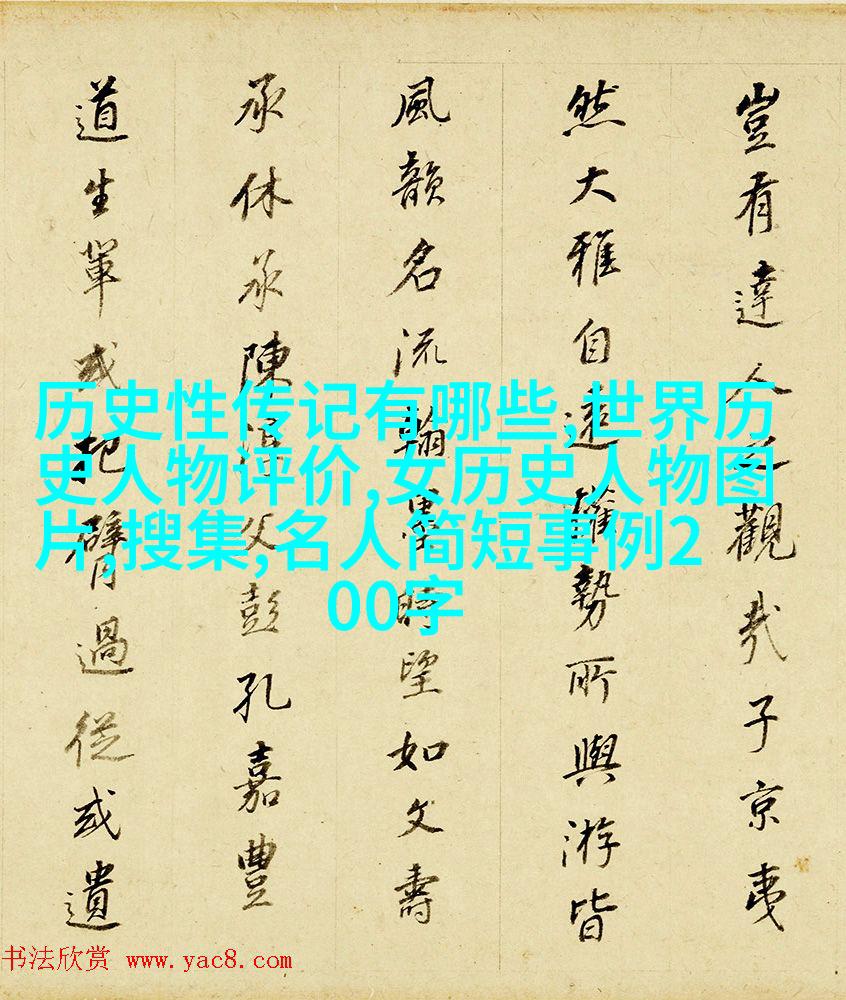 豈有達人之觀哉子京夷
然大雅自遠權勢所與游皆
風韻名流翰墨時望如文壽
承休承陳淳父彭孔嘉豐
道生軰或把臂過從或遺
历史性传记有哪些,世界历
史人物评价,女历史人物图
片,搜集,名人简短事例2
00字
书法欣赏 www.yac8.com